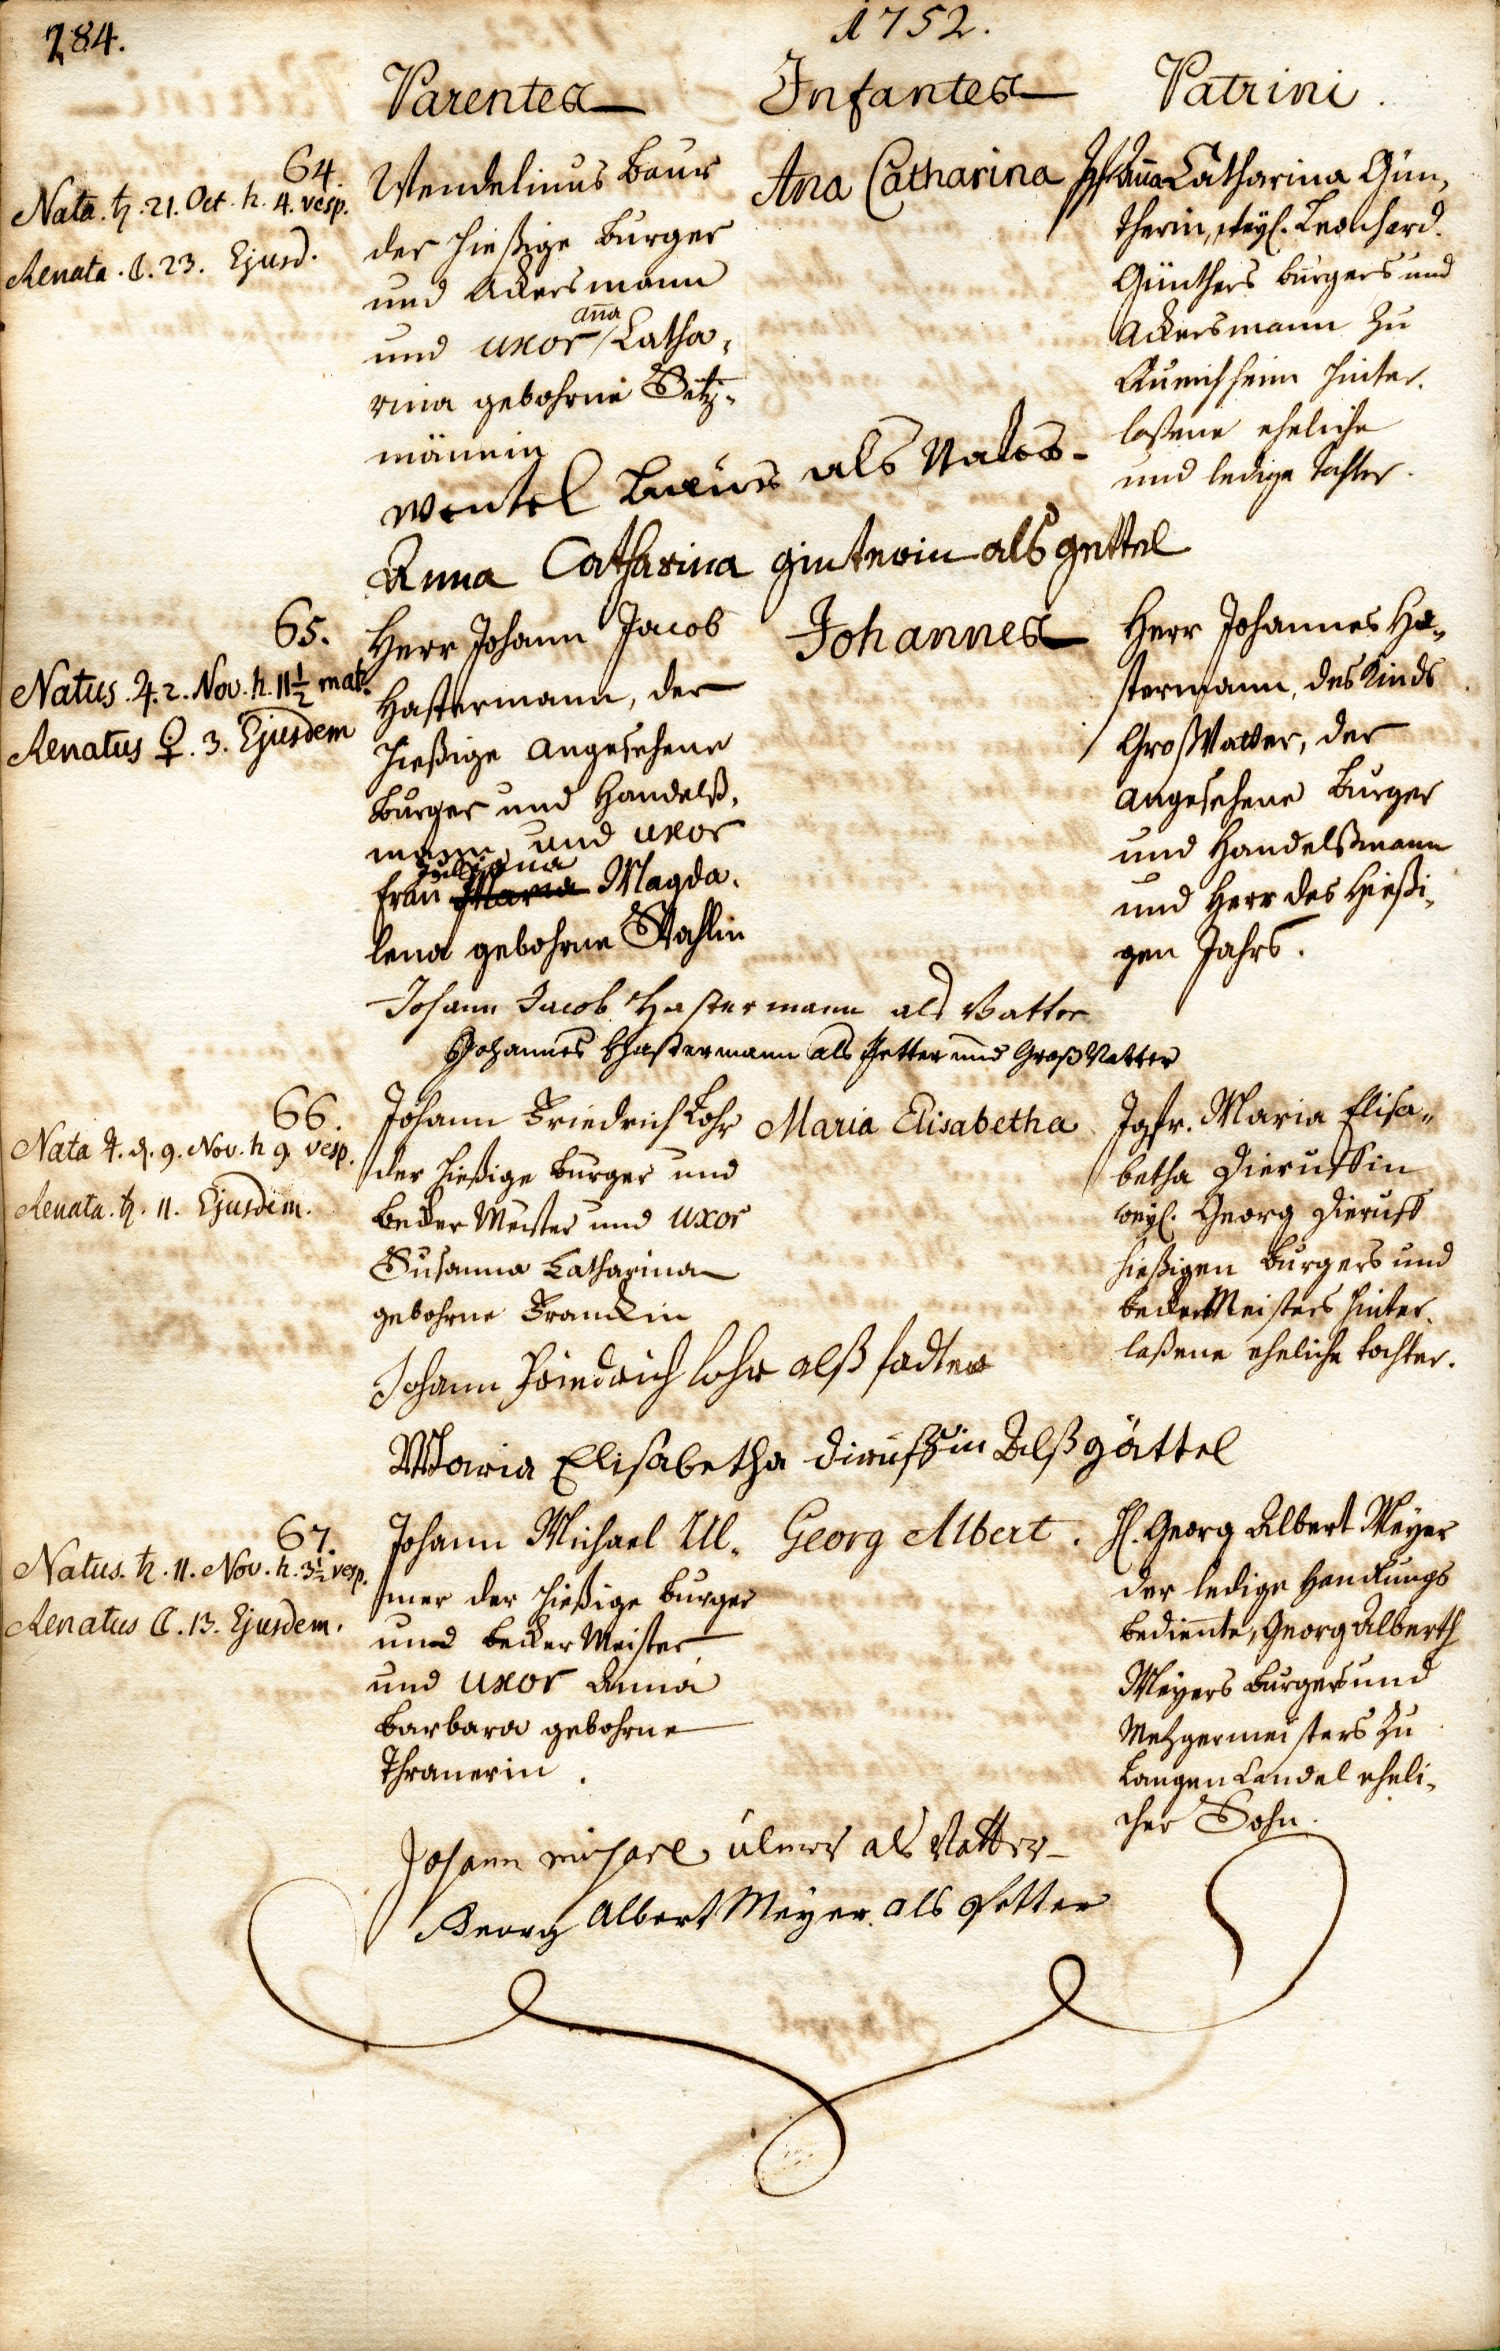 284.
1752.
Parentes
Infantes
Patrini.
64.
Nata. ♄. 21. Oct. h. 4. vesp.
Renata. ☾. 23. Ejusd.
Wendelinus Baur
der hießige Burger
und Ackersmann
und uxor Anna Catha-
rina gebohrne Sitz-
männin
Ana Catharina
Jgfr. Anna Catharina Gün-
therin, weyl. Leonhard
Günthers burgers und
Ackersmann zu
hinter-
laßene eheliche
und ledige Tochter.
wentel Baur als Vater
Anna Catharina ginterin als gettel
65.
Natus. ♃. 2. Nov. h. 11 ½ mat.
Renatus ♀. 3. Ejusdem
Herr Johann Jacob
Hastermann, der
hießige angesehene
Burger und Handelß-
mann, und uxor
Frau Juliana Magda-
lena gebohrne Stahlin
Johannes
Herr Johannes Ha-
stermann, des Kinds
GroßVatter, der
angesehene Burger
und Handelßmann
und Herr des hießi-
gen Jahrs.
Johann Jacob Hastermann als Vatter
Johannes Hastermann als Petter und Groß Vatter
66.
Nata ♃. d. 9. Nov. h 9. vesp.
Renata. ♄. 11. Ejusdem.
Johann Friedrich Lohr
der hießige Burger und
Becker Meister und uxor
Susanna Catharina
gebohrne Franckin
Maria Elisabetha
Jgfr. Maria Elisa-
betha Dieruffin
weyl. Georg Dieruff
hießigen Burgers und
becker Meisters hinter-
laßene eheliche tochter.
Johann Friedrich lohr alß fadter
Maria Elisabetha diruffin Alß gättel
67.
Natus. ♄. 11. Nov. h. 3 ½ vesp.
Renatus ☾. 13. Ejusdem.
Johann Michael Ul-
mer der hießige burger
und becker Meister
und uxor Anna
Barbara gebohrne
Thranerin.
Georg Albert.
H. Georg Albert Meyer
der ledige Handlungs
bediente, Georg Alberth
Meyers burgers und
Metzgermeisters zu
Langen Candel eheli-
cher Sohn.
Johann michael ulmer als Vatter
Georg Albert Meyer als Petter